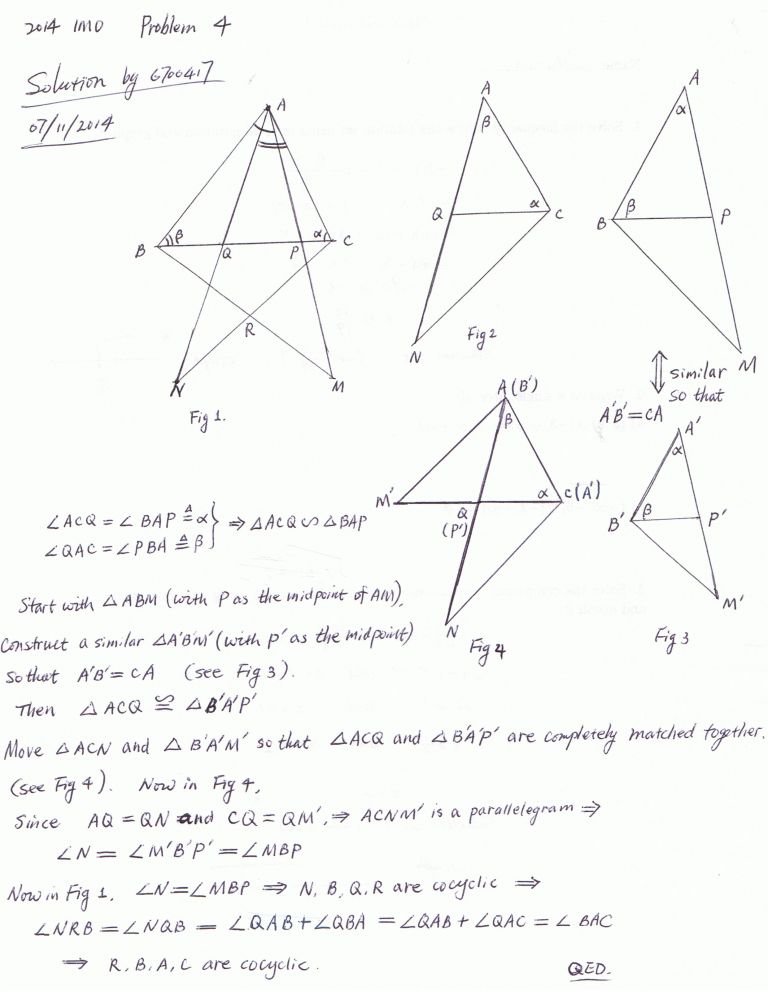 2014 IMO Problem 4
Solution by 6700417
07/11/2014
A
B
β
Q
P
α
C
R
N
M
Fig 1.
A
β
Q
α
C
N
Fig 2
A
α
B
β
P
M
similar
so that
A'B' = CA
A'
α
B'
β
P'
M'
Fig 3
A (B')
β
M'
Q
(P')
α
C(A')
N
Fig 4
∠ACQ = ∠BAP ≜ α
∠QAC = ∠PBA ≜ β } ⇒ △ACQ ∽ △BAP
Start with △ABM (with P as the midpoint of AM),
Construct a similar △A'B'M' (with P' as the midpoint)
so that A'B' = CA (see Fig 3).
Then △ACQ ≌ △B'A'P'
Move △ACN and △B'A'M' so that △ACQ and △B'A'P' are completely matched together.
(see Fig 4). Now in Fig 4,
Since AQ = QN and CQ = QM', ⇒ ACNM' is a parallelegram ⇒
∠N = ∠M'B'P' = ∠MBP
Now in Fig 1. ∠N = ∠MBP ⇒ N, B, Q, R are cocyclic ⇒
∠NRB = ∠NQB = ∠QAB + ∠QBA = ∠QAB + ∠QAC = ∠BAC
⇒ R, B, A, C are cocyclic.
QED.